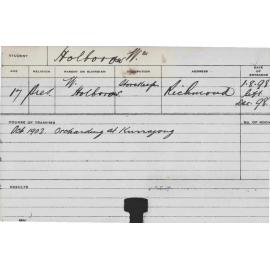 STUDENT Holborow Wm
AGE RELIGION PARENT OR GUARDIAN OCCUPATION ADDRESS DATE OF ENTRANCE
17 Pres. W. Holborow Storekeeper Richmond 1-8-98
left
Dec. 98
COURSE OF TRAINING
Oct 1902 Orcharding at Kurrajong
RESULTS